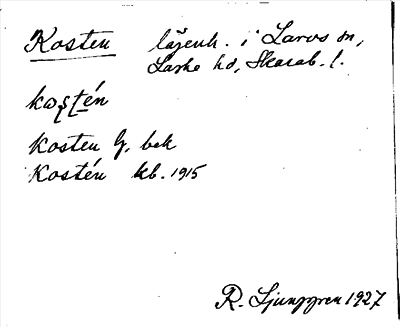 Kosten lägenh. i Larvs sn,
Laske hd, Skarab. l.
kostén
Kosten G. bek
Kostén kb. 1915
R. Ljunggren 1927